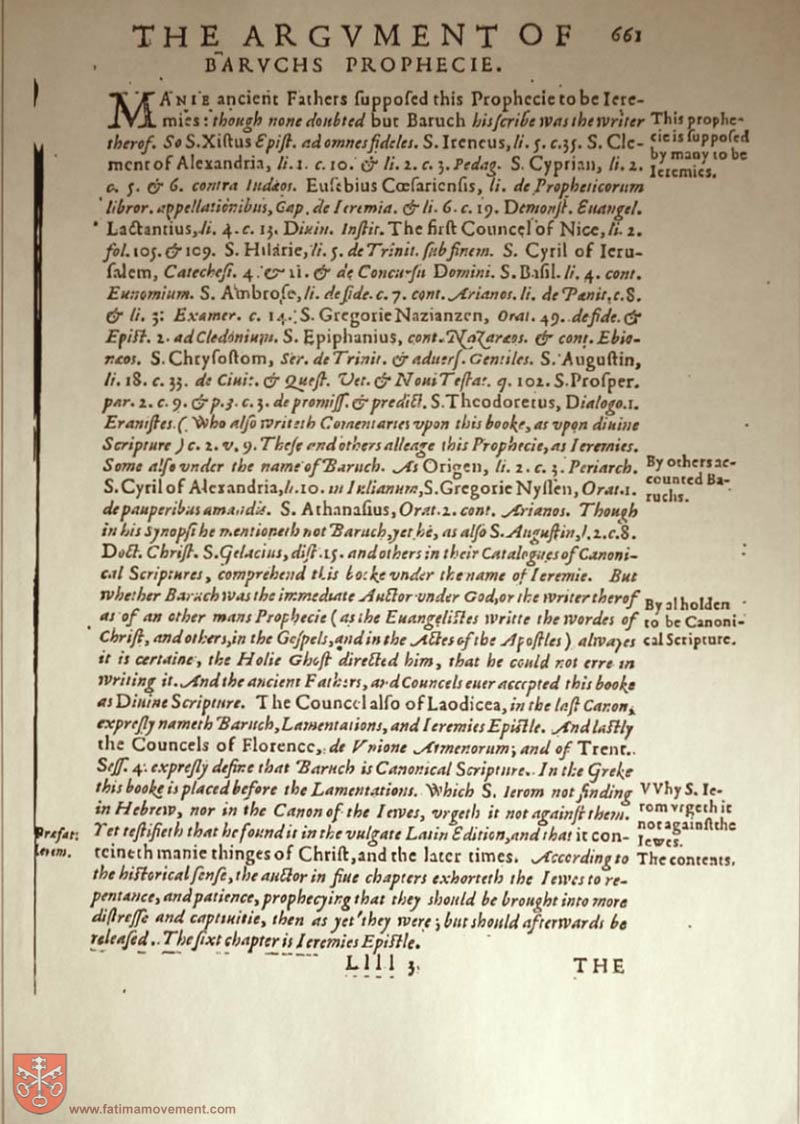 THE ARGVMENT OF 661
BARVCHS PROPHECIE.
MANIE ancient Fathers supposed this Prophecie to be Iere-
mies: though none doubted but Baruch his scribe was the writer
therof. So S. Xistus Epist. ad omnes fideles. S. Ireneus, li. 5. c. 35. S. Cle-
ment of Alexandria, li. 1. c. 10. & li. 2. c. 3. Pedag. S. Cyprian, li. 2.
c. 5. & 6. contra Iudæos. Eusebius Cœsariensis, li. de Propheticorum
libror. appellationibus, Cap. de Ieremia. & li. 6. c. 19. Demonst. Euangel.
Lactantius, li. 4. c. 13. Diuin. Instit. The first Councel of Nice, li. 2.
fol. 105. & 109. S. Hilarie, li. 5. de Trinit. sub finem. S. Cyril of Ieru-
salem, Catechesi. 4. & 11. & de Concursu Domini. S. Basil. li. 4. cont.
Eunomium. S. Ambrose, li. de fide. c. 7. cont. Arianos. li. de Pænit. c. 8.
& li. 3. Examer. c. 14. S. Gregorie Nazianzen, Orat. 49. de fide. &
Epist. 2. ad Cledonium. S. Epiphanius, cont. Nazaræos. & cont. Ebio-
næos. S. Chrysostom, Ser. de Trinit. & aduers. Gentiles. S. Augustin,
li. 18. c. 33. de Ciuit. & Quest. Vet. & Noui Testat. q. 102. S. Prosper.
par. 2. c. 9. & p. 3. c. 3. de promiss. & predict. S. Theodoretus, Dialogo. 1.
Eranistes. (Who also writeth Comentaries vpon this booke, as vpon diuine
Scripture) c. 2. v. 9. These and others alleage this Prophecie, as Ieremies.
Some also vnder the name of Baruch. As Origen, li. 2. c. 3. Periarch.
S. Cyril of Alexandria, li. 10. in Iulianum, S. Gregorie Nyssen, Orat. 1.
de pauperibus amandis. S. Athanasius, Orat. 2. cont. Arianos. Though
in his synopsi he mentioneth not Baruch, yet he, as also S. Augustin, l. 2. c. 8.
Doct. Christ. S. Gelacius, dist. 15. and others in their Catalogues of Canoni-
cal Scriptures, comprehend this booke vnder the name of Ieremie. But
whether Baruch was the immediate Auctor vnder God, or the writer therof
as of an other mans Prophecie (as the Euangelistes writte the wordes of
Christ, and others, in the Gospels, and in the Actes of the Apostles) alwayes
it is certaine, the Holie Ghost directed him, that he could not erre in
writing it. And the ancient Fathers, and Councels euer accepted this booke
as Diuine Scripture. The Councel also of Laodicea, in the last Canon,
expresly nameth Baruch, Lamentations, and Ieremies Epistle. And lastly
the Councels of Florence, de Vnione Armenorum; and of Trent.
Sess. 4. expresly define that Baruch is Canonical Scripture. In the Greke
this booke is placed before the Lamentations. Which S. Ierom not finding
in Hebrew, nor in the Canon of the Iewes, vrgeth it not against them.
Yet testifieth that he found it in the vulgate Latin Edition, and that it con-
teineth manie thinges of Christ, and the later times. According to
the historical sense, the auctor in fiue chapters exhorteth the Iewes to re-
pentance, and patience, prophecying that they should be brought into more
distresse and captiuitie, then as yet they were; but should afterwards be
released. The sixt chapter is Ieremies Epistle.
This prophe-
cie is supposed
by many to be
Ieremies.
By others ac-
counted Ba-
ruchs.
By al holden
to be Canoni-
cal Scripture.
VVhy S. Ie-
rom vrgeth it
not against the
Iewes.
The contents.
Præfat:
Ierem.
Llll 3
THE
www.fatimamovement.com